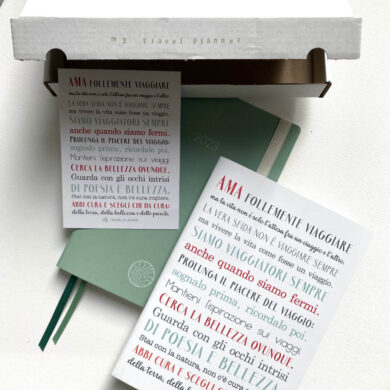 my travel planner
AMA FOLLEMENTE VIAGGIARE
ma la vita non è solo l'attesa fra un viaggio e l'altro.
LA VERA SFIDA NON È VIAGGIARE SEMPRE
ma vivere la vita come fosse un viaggio.
SIAMO VIAGGIATORI SEMPRE
anche quando siamo fermi.
PROLUNGA IL PIACERE DEL VIAGGIO:
sognalo prima, ricordalo poi.
Mantieni l'ispirazione sui viaggi
CERCA LA BELLEZZA OVUNQUE.
Guarda con gli occhi intrisi
DI POESIA E BELLEZZA.
Stai con la natura, non c'è cura migliore.
ABBI CURA E SCEGLI CHI HA CURA
della terra, della bellezza e delle parole.
2023
AMA FOLLEMENTE VIAGGIARE
ma la vita non è solo l'attesa fra un viaggio e l'altro.
LA VERA SFIDA NON È VIAGGIARE SEMPRE
ma vivere la vita come fosse un viaggio.
SIAMO VIAGGIATORI SEMPRE
anche quando siamo fermi.
PROLUNGA IL PIACERE DEL VIAGGIO:
sognalo prima, ricordalo poi.
Mantieni l'ispirazione sui viaggi
CERCA LA BELLEZZA OVUNQUE.
Guarda con gli occhi intrisi
DI POESIA E BELLEZZA.
Stai con la natura, non c'è cura migliore.
ABBI CURA E SCEGLI CHI HA CURA
della terra, della bellezza e delle